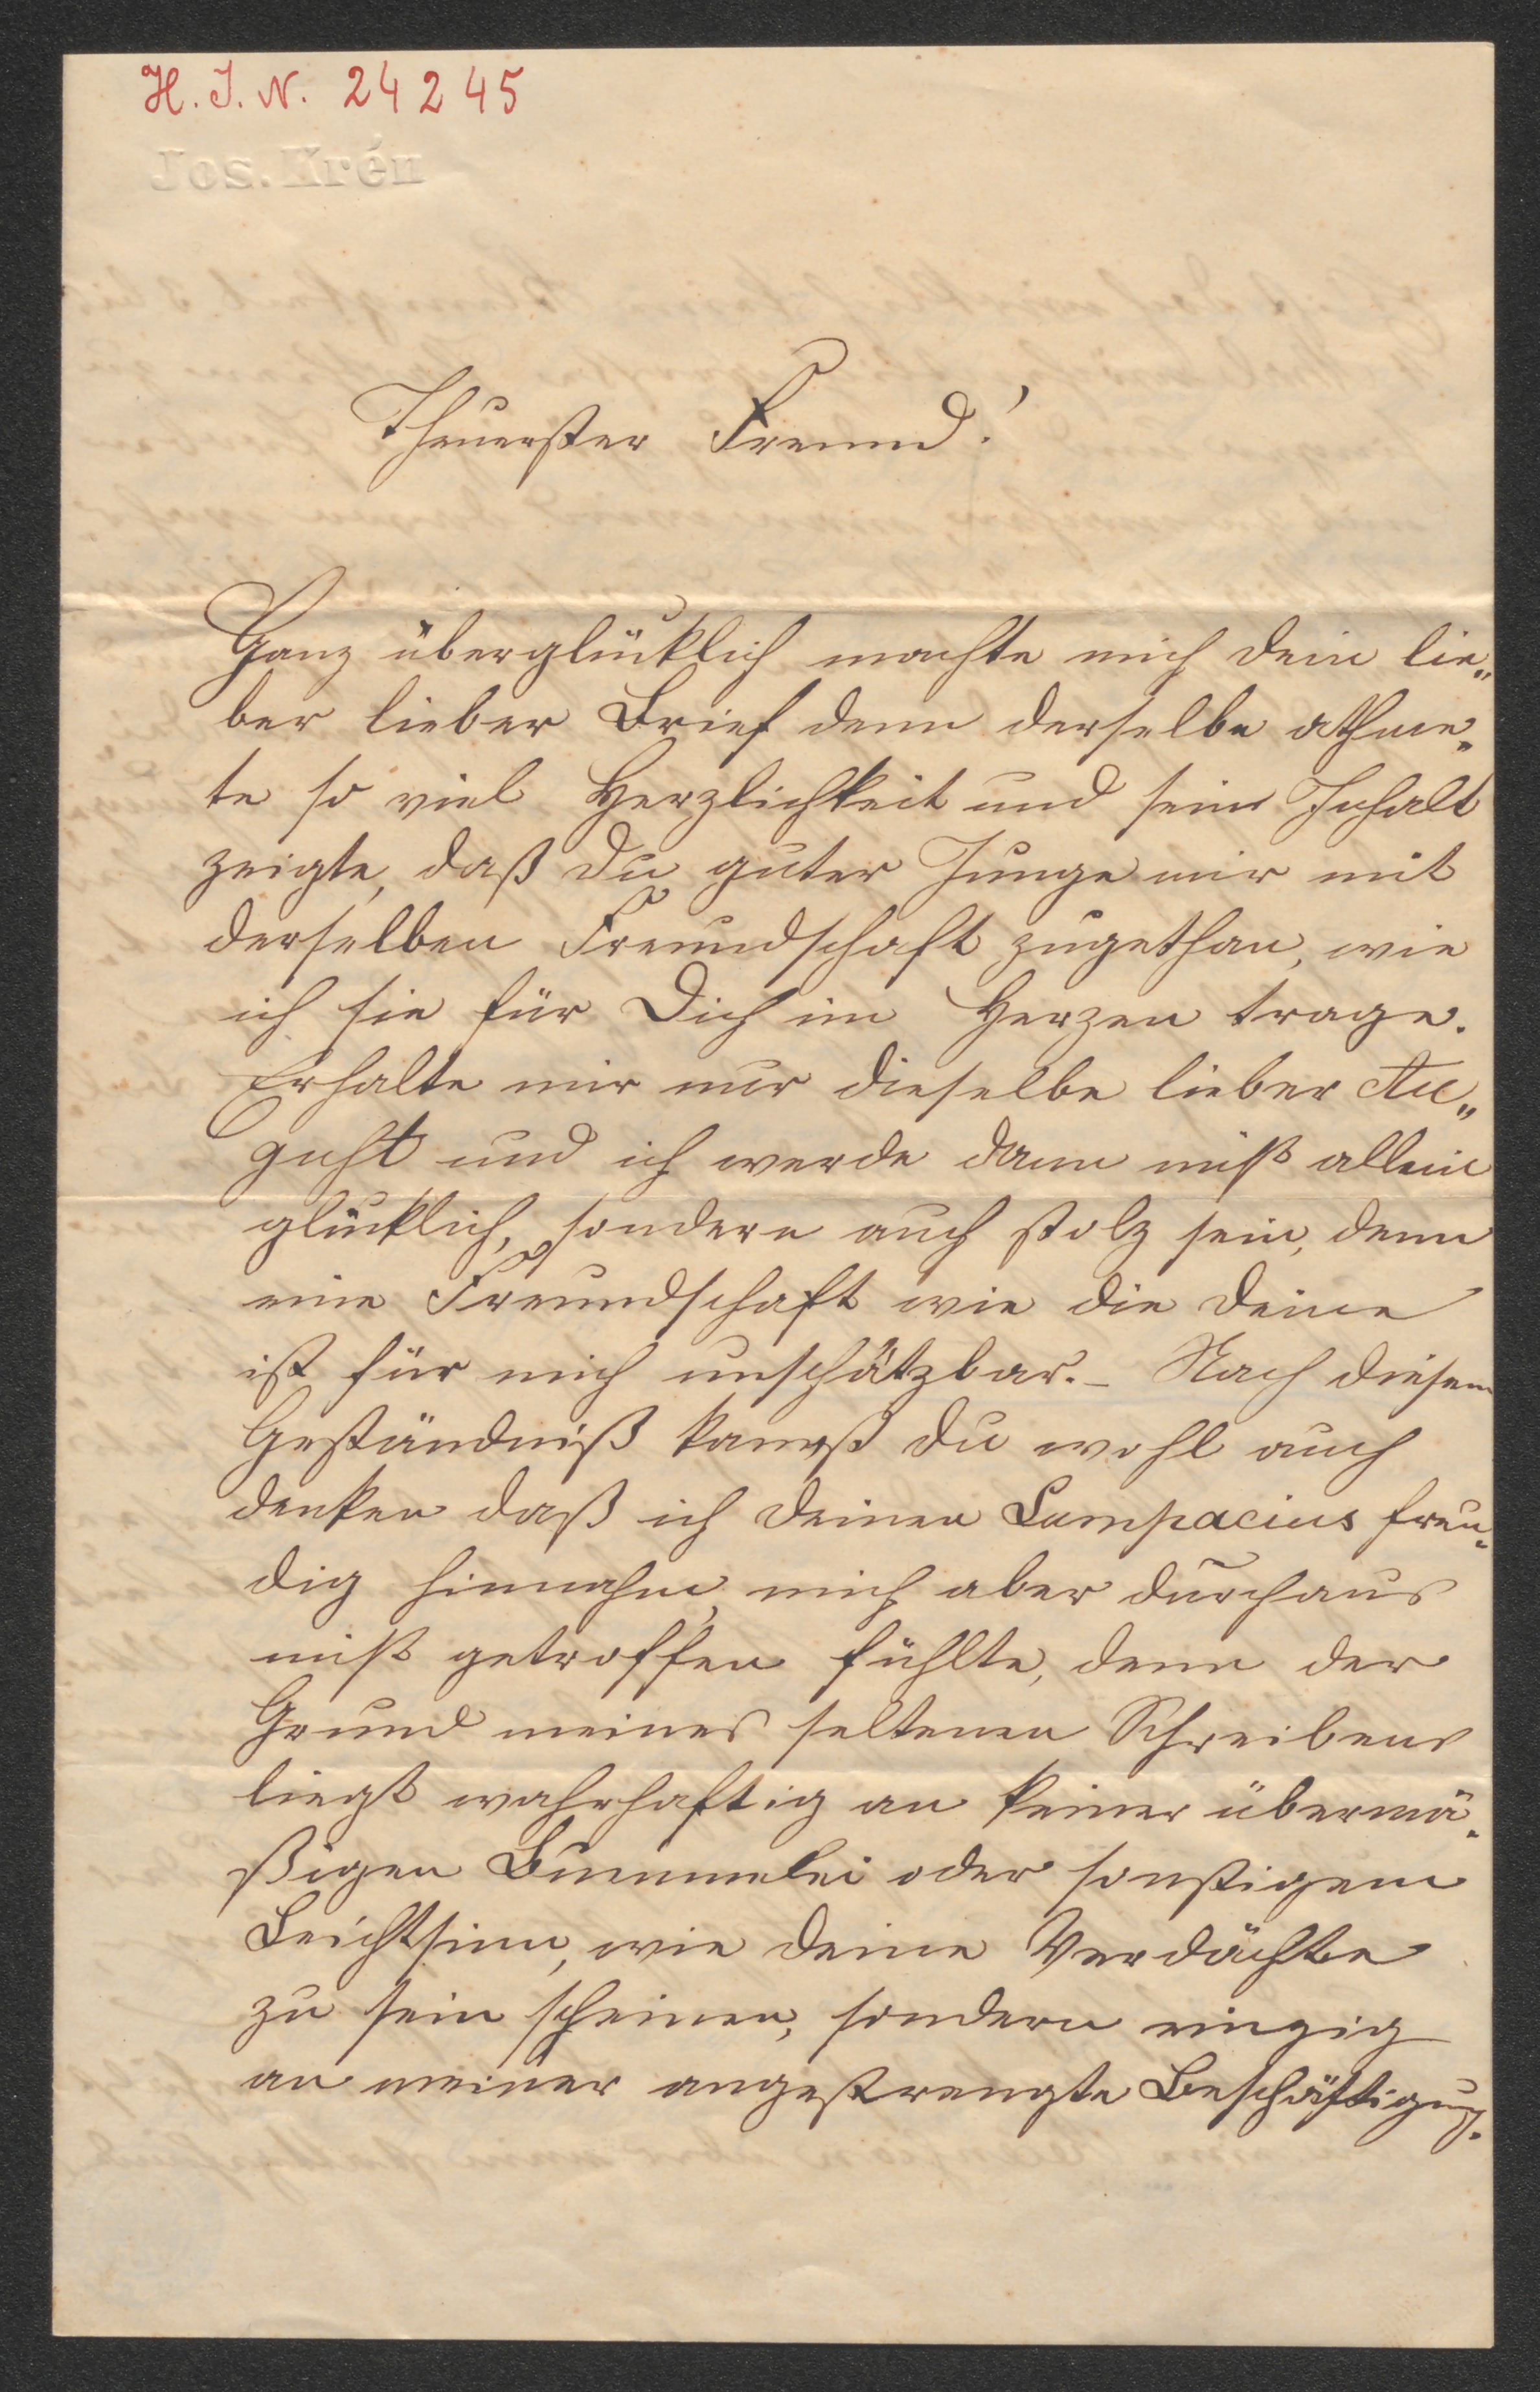 H. I. N. 24245
Jos. Krén
Theuerster Freund!
Ganz überglücklich machte mich dein lie„
ber lieber Brief denn derselbe athme„
te so viel Herzlichkeit und sein Inhalt
zeigte, daß du guter Junge mir mit
derselben Freundschaft zugethan, wie
ich sie für Dich im Herzen trage.
Erhalte mir nur dieselbe lieber Au„
gust und ich werde dann nicht allein
glücklich, sondern auch stolz sein, denn
eine Freundschaft wie die Deine
ist für mich unschätzbar. – Nach diesem
Geständniß kannst Du wohl auch
denken daß ich Deinen Lampacius freu„
dig hinnahm, mich aber durchaus
nicht getroffen fühlte, denn der
Grund meines seltenen Schreibens
liegt wahrhaftig an keiner übermä„
ßigen Bummelei oder sonstigem
Leichtsinn, wie Deine Verdächte
zu sein scheinen, sondern einzig
an meiner angestrengte Beschäftigung.